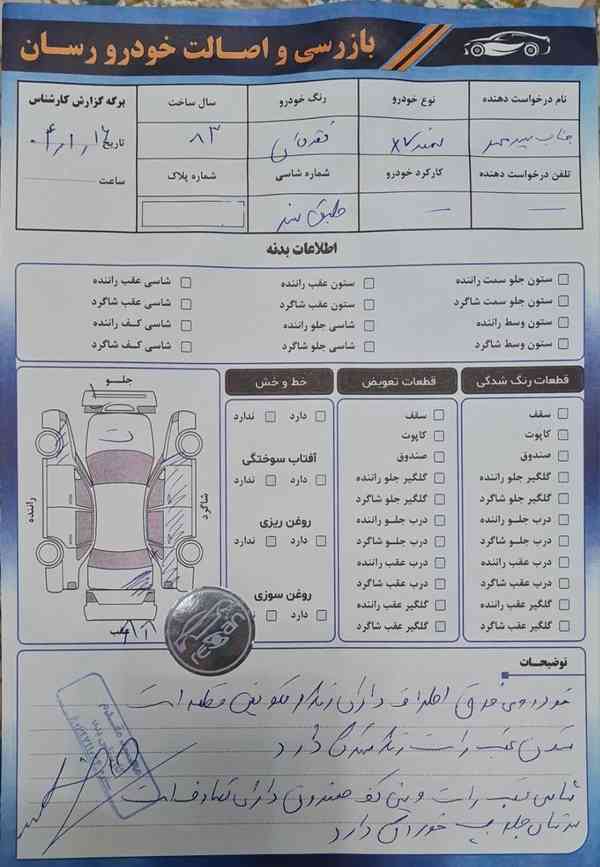 بازرسی و اصالت خودرو رسان
نام درخواست دهنده
نوع خودرو
رنگ خودرو
سال ساخت
برگه گزارش کارشناس
جناب
سمند x7
نقره‌ای
۸۳
تاریخ ۰۴/۱/۱۶
تلفن درخواست دهنده
کارکرد خودرو
شماره شاسی
شماره پلاک
ساعت
طبق سند
اطلاعات بدنه
ستون جلو سمت راننده
ستون عقب راننده
شاسی عقب راننده
ستون جلو سمت شاگرد
ستون عقب شاگرد
شاسی عقب شاگرد
ستون وسط راننده
شاسی جلو راننده
شاسی کف راننده
ستون وسط شاگرد
شاسی جلو شاگرد
شاسی کف شاگرد
قطعات رنگ شدگی
سقف
کاپوت
صندوق
گلگیر جلو راننده
گلگیر جلو شاگرد
درب جلو راننده
درب جلو شاگرد
درب عقب راننده
درب عقب شاگرد
گلگیر عقب راننده
گلگیر عقب شاگرد
قطعات تعویض
سقف
کاپوت
صندوق
گلگیر جلو راننده
گلگیر جلو شاگرد
درب جلو راننده
درب جلو شاگرد
درب عقب راننده
درب عقب شاگرد
گلگیر عقب راننده
گلگیر عقب شاگرد
خط و خش
دارد
ندارد
آفتاب سوختگی
دارد
ندارد
روغن ریزی
دارد
ندارد
روغن سوزی
دارد
جلو
ت
راننده
شاگرد
عقب
توضیحات
خودروی فوق اطراف دارای رنگ و تعویض قطعه است
ستون عقب راست رنگ شدگی دارد
شاسی عقب راست و سینی کف صندوق دارای تصادف است
سرشاسی جلو چپ خوردگی دارد